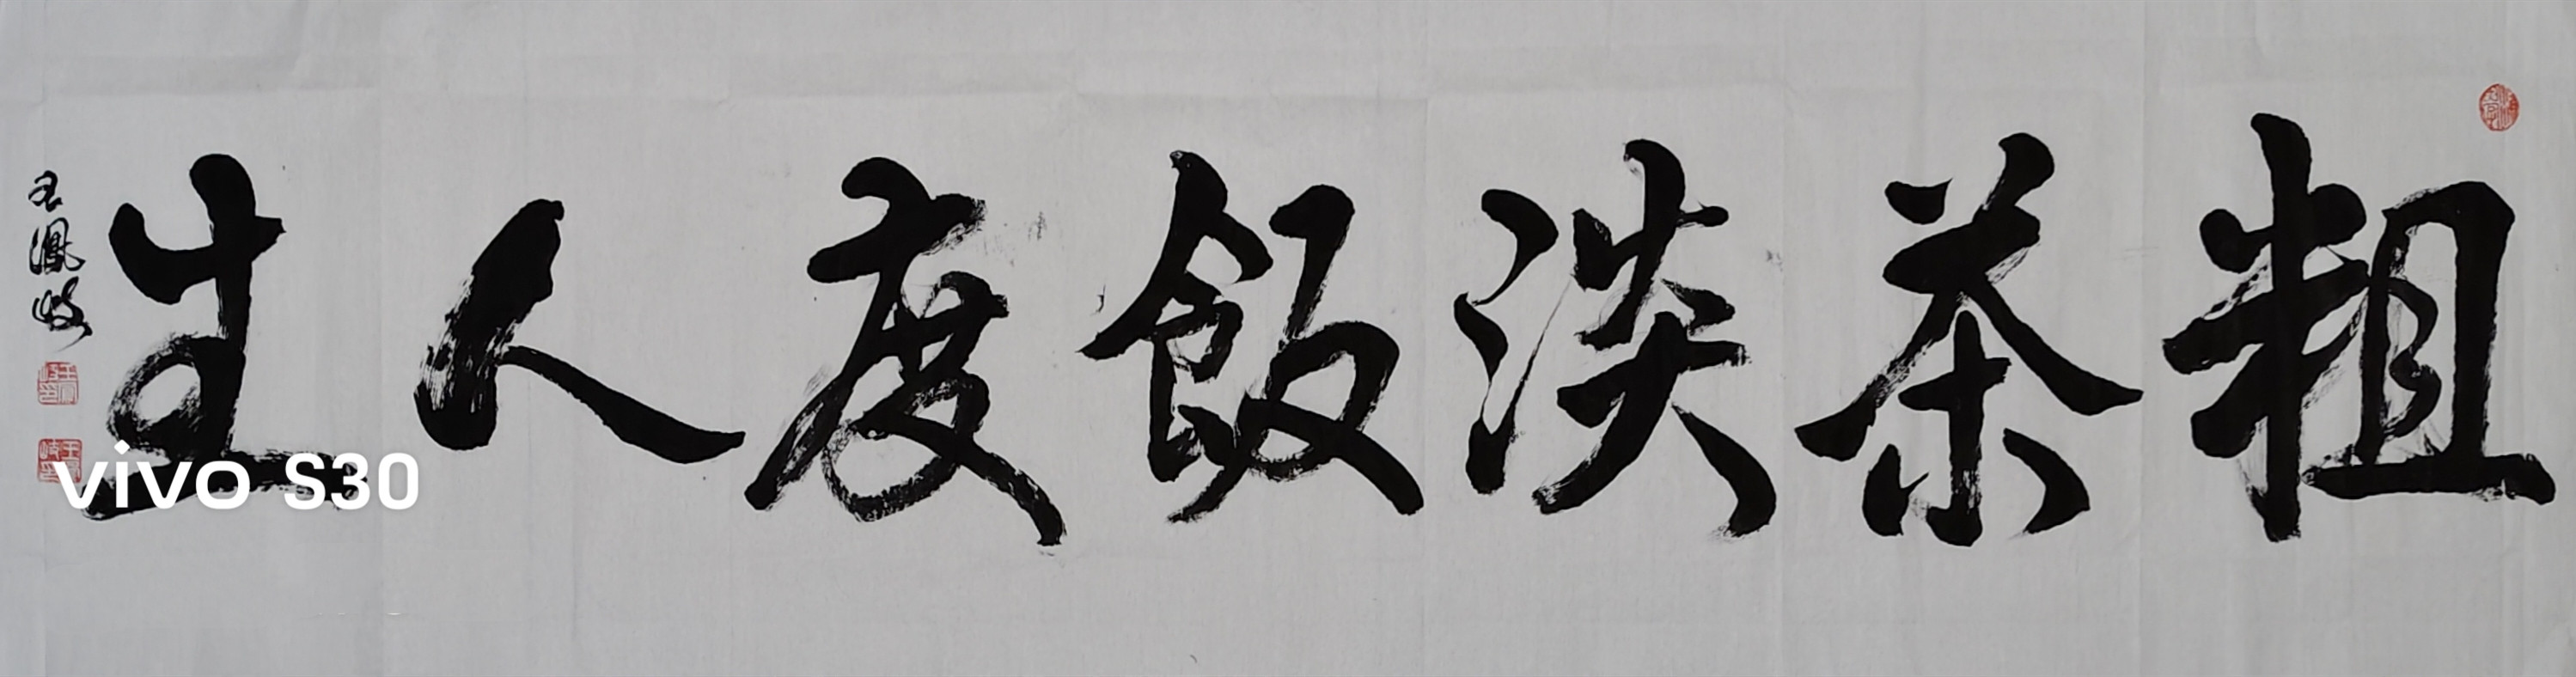 粗茶淡飯度人生
王鳳岐
vivo S30